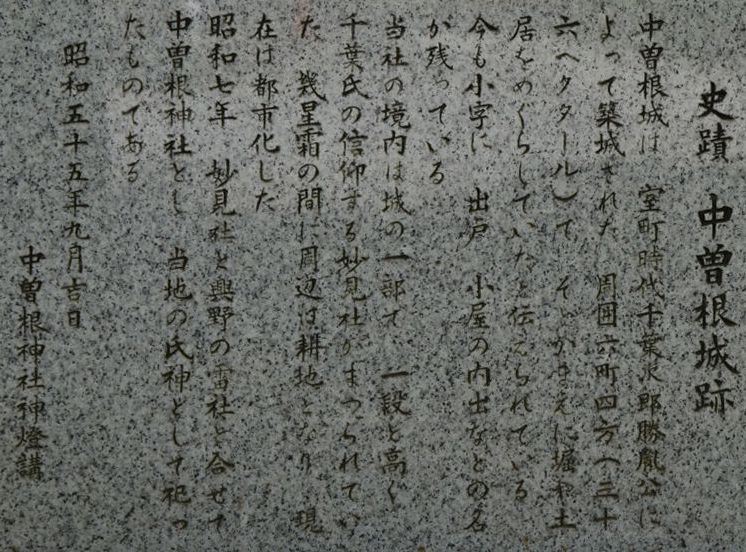 史蹟 中曽根城跡
中曽根城は 室町時代千葉次郎勝胤公に
よって築城された 周囲六町四方(三十
六ヘクタール)で そとがまえに堀や土
居をめぐらしていたと伝えられている
今も小字に 出戸 小屋の内出などの名
が残っている
当社の境内は城の一部で 一段と高く
千葉氏の信仰する妙見社がまつられてい
た 幾星霜の間に周辺は耕地となり 現
在は都市化した
昭和七年 妙見社と興野の雷社と合せて
中曽根神社とし 当地の氏神として祀っ
たものである
昭和五十五年九月吉日
中曽根神社神燈講